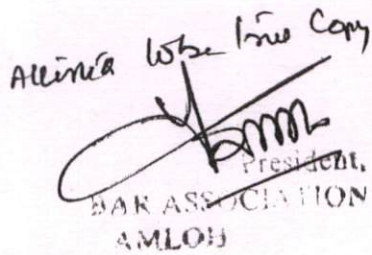 Attested to be True Copy
President,
BAR ASSOCIATION
AMLOH